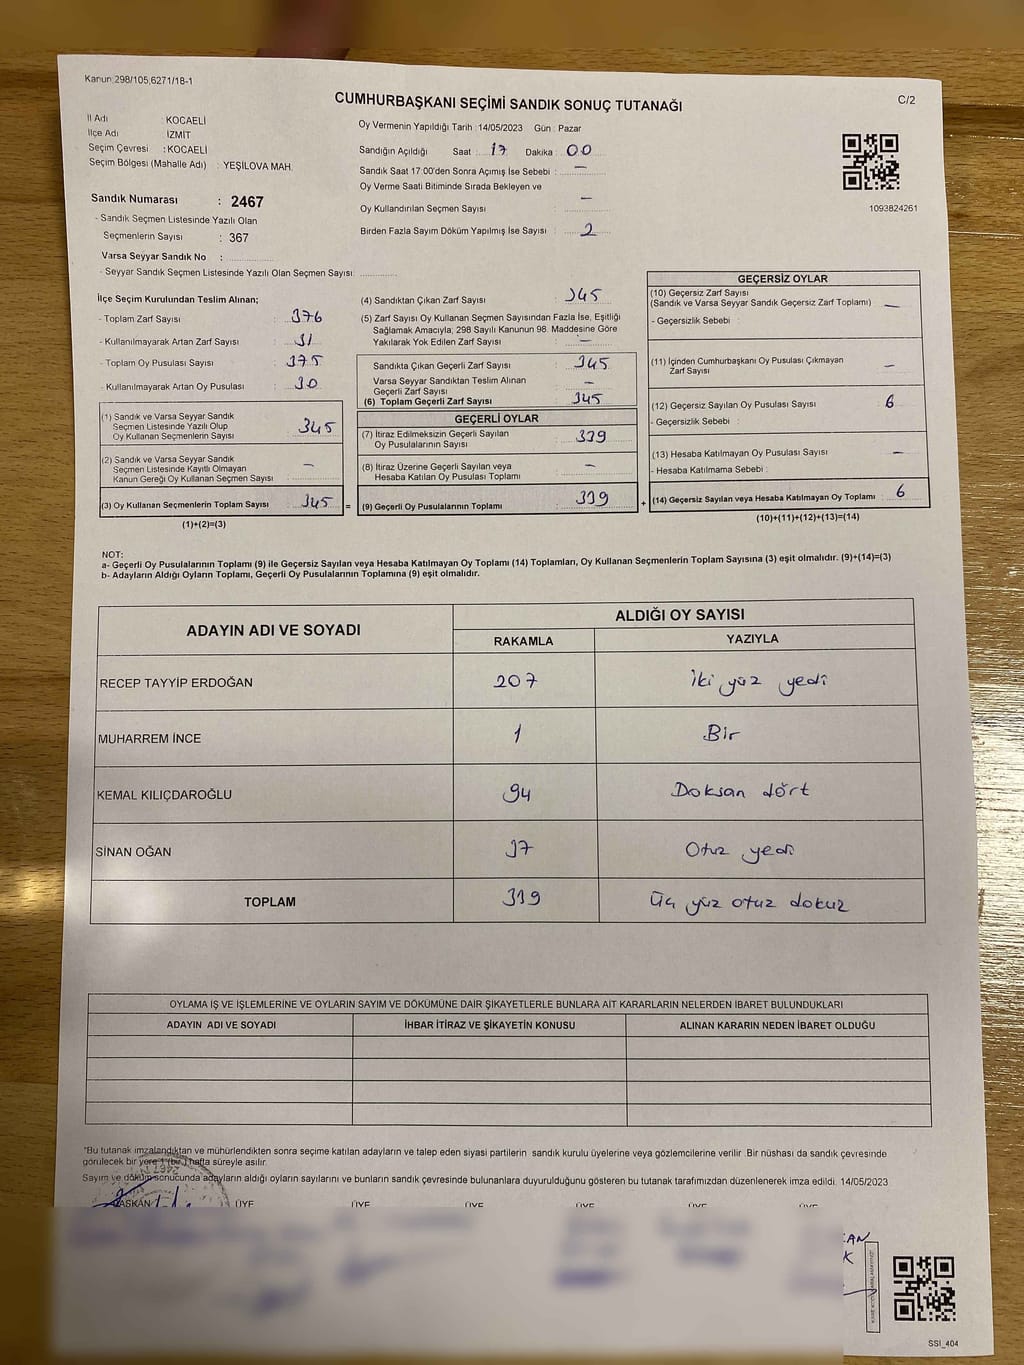 Kanun 298/105,6271/18-1
C/2
CUMHURBAŞKANI SEÇİMİ SANDIK SONUÇ TUTANAĞI
İl Adı : KOCAELİ
İlçe Adı : İZMİT
Seçim Çevresi : KOCAELİ
Seçim Bölgesi (Mahalle Adı) : YEŞİLOVA MAH.
Sandık Numarası : 2467
- Sandık Seçmen Listesinde Yazılı Olan
Seçmenlerin Sayısı : 367
Varsa Seyyar Sandık No :
- Seyyar Sandık Seçmen Listesinde Yazılı Olan Seçmen Sayısı:
Oy Vermenin Yapıldığı Tarih : 14/05/2023 Gün : Pazar
Sandığın Açıldığı Saat : 17 Dakika : 00
Sandık Saat 17:00'den Sonra Açımış İse Sebebi : —
Oy Verme Saati Bitiminde Sırada Bekleyen ve
Oy Kullandırılan Seçmen Sayısı : —
Birden Fazla Sayım Döküm Yapılmış İse Sayısı : 2
1093824261
İlçe Seçim Kurulundan Teslim Alınan;
- Toplam Zarf Sayısı : 376
- Kullanılmayarak Artan Zarf Sayısı : 31
- Toplam Oy Pusulası Sayısı : 375
- Kullanılmayarak Artan Oy Pusulası : 30
(1) Sandık ve Varsa Seyyar Sandık
Seçmen Listesinde Yazılı Olup
Oy Kullanan Seçmenlerin Sayısı : 345
(2) Sandık ve Varsa Seyyar Sandık
Seçmen Listesinde Kayıtlı Olmayan
Kanun Gereği Oy Kullanan Seçmen Sayısı : —
(3) Oy Kullanan Seçmenlerin Toplam Sayısı : 345 =
(1)+(2)=(3)
(4) Sandıktan Çıkan Zarf Sayısı : 345
(5) Zarf Sayısı Oy Kullanan Seçmen Sayısından Fazla İse, Eşitliği
Sağlamak Amacıyla; 298 Sayılı Kanunun 98. Maddesine Göre
Yakılarak Yok Edilen Zarf Sayısı : —
Sandıkta Çıkan Geçerli Zarf Sayısı : 345
Varsa Seyyar Sandıktan Teslim Alınan
Geçerli Zarf Sayısı : —
(6) Toplam Geçerli Zarf Sayısı : 345
GEÇERLİ OYLAR
(7) İtiraz Edilmeksizin Geçerli Sayılan
Oy Pusulalarının Sayısı : 339
(8) İtiraz Üzerine Geçerli Sayılan veya
Hesaba Katılan Oy Pusulası Toplamı : —
(9) Geçerli Oy Pusulalarının Toplamı : 339 +
GEÇERSİZ OYLAR
(10) Geçersiz Zarf Sayısı
(Sandık ve Varsa Seyyar Sandık Geçersiz Zarf Toplamı) : —
- Geçersizlik Sebebi :
(11) İçinden Cumhurbaşkanı Oy Pusulası Çıkmayan
Zarf Sayısı : —
(12) Geçersiz Sayılan Oy Pusulası Sayısı : 6
- Geçersizlik Sebebi :
(13) Hesaba Katılmayan Oy Pusulası Sayısı : —
- Hesaba Katılmama Sebebi :
(14) Geçersiz Sayılan veya Hesaba Katılmayan Oy Toplamı : 6
(10)+(11)+(12)+(13)=(14)
NOT:
a- Geçerli Oy Pusulalarının Toplamı (9) ile Geçersiz Sayılan veya Hesaba Katılmayan Oy Toplamı (14) Toplamları, Oy Kullanan Seçmenlerin Toplam Sayısına (3) eşit olmalıdır. (9)+(14)=(3)
b- Adayların Aldığı Oyların Toplamı, Geçerli Oy Pusulalarının Toplamına (9) eşit olmalıdır.
ADAYIN ADI VE SOYADI ALDIĞI OY SAYISI
RAKAMLA YAZIYLA
RECEP TAYYİP ERDOĞAN 207 iki yüz yedi
MUHARREM İNCE 1 Bir
KEMAL KILIÇDAROĞLU 94 Doksan dört
SİNAN OĞAN 37 Otuz yedi
TOPLAM 339 Üç yüz otuz dokuz
OYLAMA İŞ VE İŞLEMLERİNE VE OYLARIN SAYIM VE DÖKÜMÜNE DAİR ŞİKAYETLERLE BUNLARA AİT KARARLARIN NELERDEN İBARET BULUNDUKLARI
ADAYIN ADI VE SOYADI İHBAR İTİRAZ VE ŞİKAYETİN KONUSU ALINAN KARARIN NEDEN İBARET OLDUĞU
"Bu tutanak imzalandıktan ve mühürlendikten sonra seçime katılan adayların ve talep eden siyasi partilerin sandık kurulu üyelerine veya gözlemcilerine verilir .Bir nüshası da sandık çevresinde
görülecek bir yere 1 (bir ) hafta süreyle asılır.
Sayım ve döküm sonucunda adayların aldığı oyların sayılarını ve bunların sandık çevresinde bulunanlara duyurulduğunu gösteren bu tutanak tarafımızdan düzenlenerek imza edildi. 14/05/2023
BAŞKAN ÜYE ÜYE ÜYE ÜYE ÜYE ÜYE
SSI_404